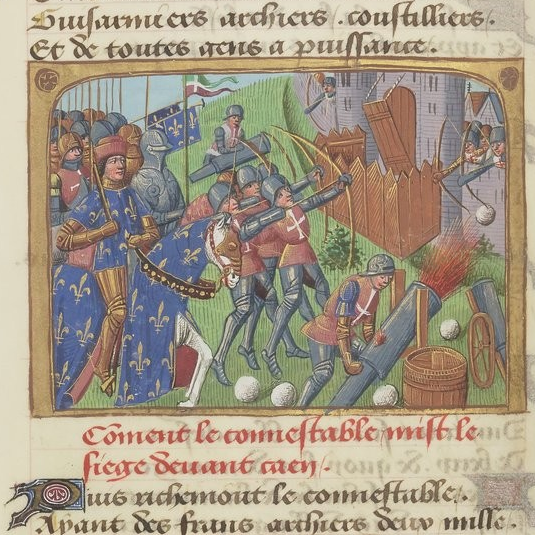 Guisarmiers archiers . coustilliers .
Et de toutes gens a puissance .
Cõment le connestable mist le
siege deuant caen .
Puis richemont le connestable .
Ayant des frans archiers deux mille .